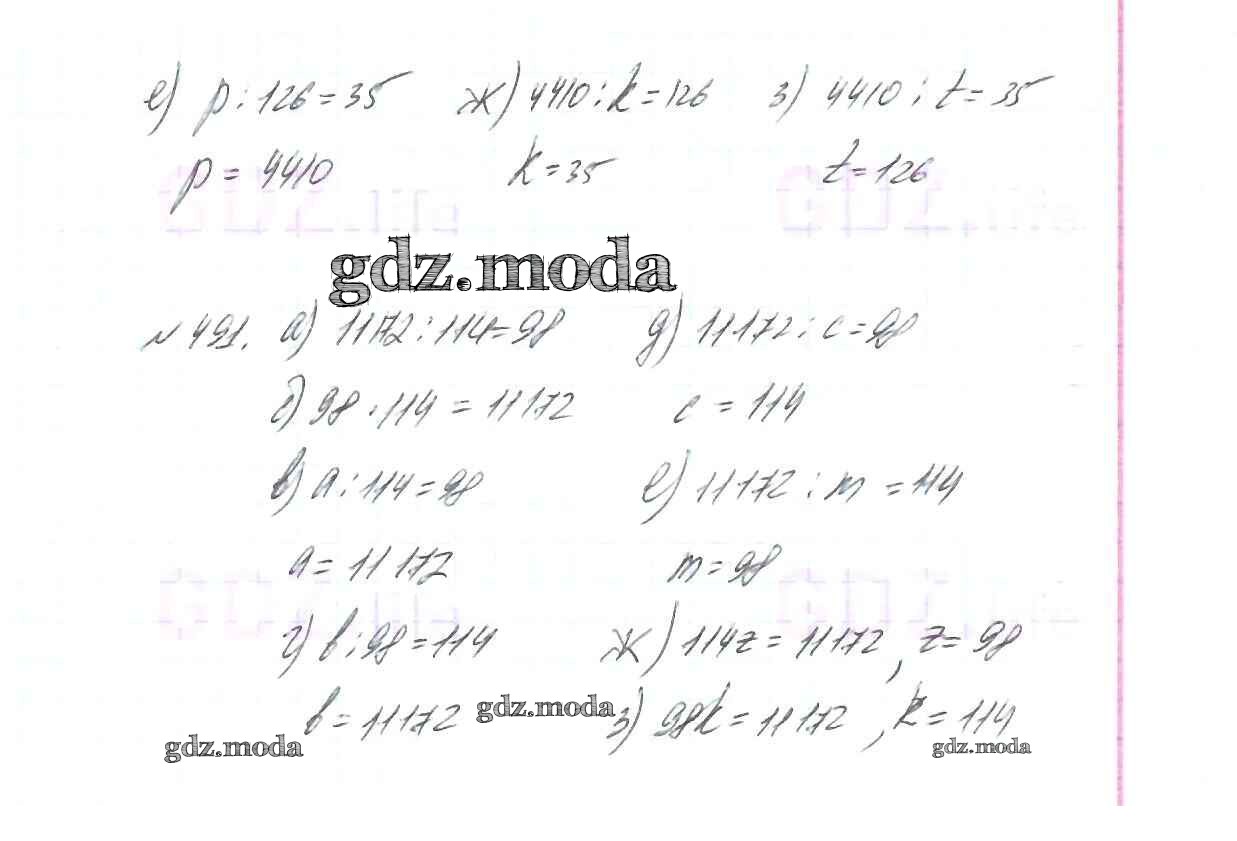 е) p : 126 = 35 ж) 4410 : k = 126 з) 4410 : t = 35
p = 4410 k = 35 t = 126
gdz.moda
№ 491. а) 11172 : 114 = 98 д) 11172 : c = 98
б) 98 · 114 = 11172 c = 114
в) a : 114 = 98 е) 11172 : m = 114
a = 11172 m = 98
г) b : 98 = 114 ж) 114z = 11172, z = 98
b = 11172 gdz.moda з) 98k = 11172, k = 114
gdz.moda gdz.moda